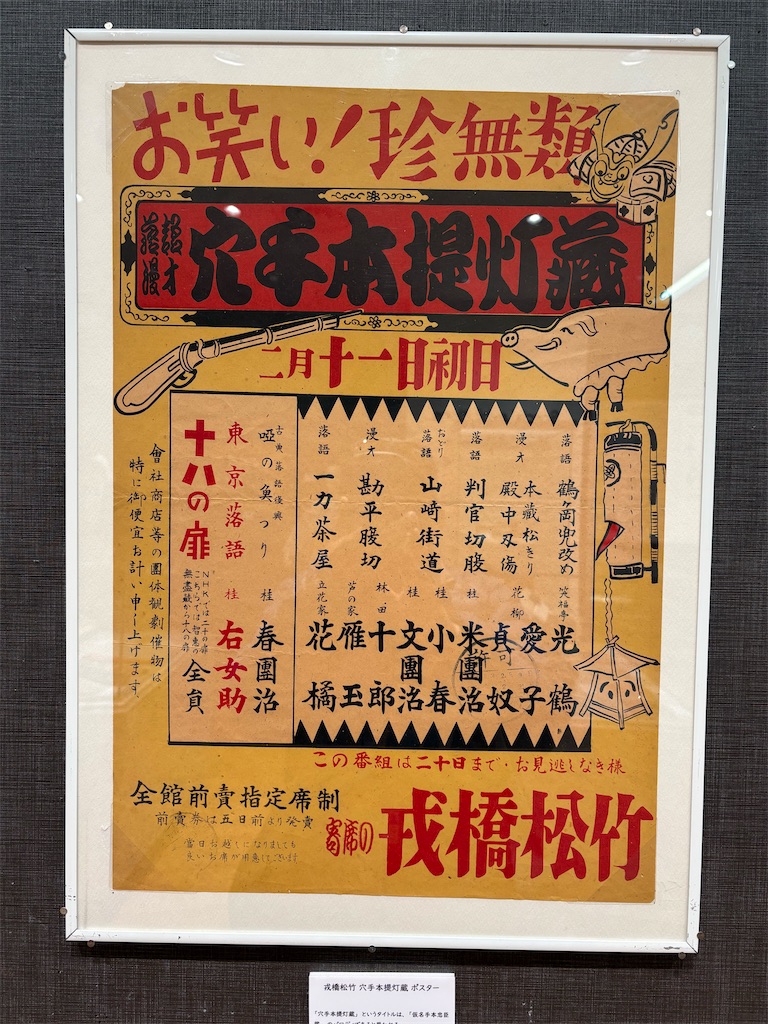 お笑い!珍無類
落語
漫才
穴手本提灯蔵
二月十一日初日
落語 鶴ヶ岡兜改め 笑福亭 光鶴
漫才 本蔵松きり 殿中刃傷 花柳 愛子 貞奴
落語 判官切腹 桂 米團治
おどり 落語 山崎街道 桂 小春 桂 文團治
漫才 勘平腹切 林田 十郎 芦の家 雁玉
落語 一力茶屋 立花家 花橘
古典落語復興 唖の魚つり 桂 春團治
東京落語 桂 右女助
十八の扉
NHKでは二十の扉
こちらでは智恵の
無盡蔵から十八の扉
全員
會社商店等の團体観劇催物は
特に御便宜お計い申し上げます
この番組は二十日まで・お見逃しなき様
全館前賣指定席制
前賣券は五日前より発賣
當日お越しになりましても
良いお席が用意してございます
寄席の 戎橋松竹
戎橋松竹 穴手本提灯蔵 ポスター
「穴手本提灯蔵」というタイトルは、「仮名手本忠臣